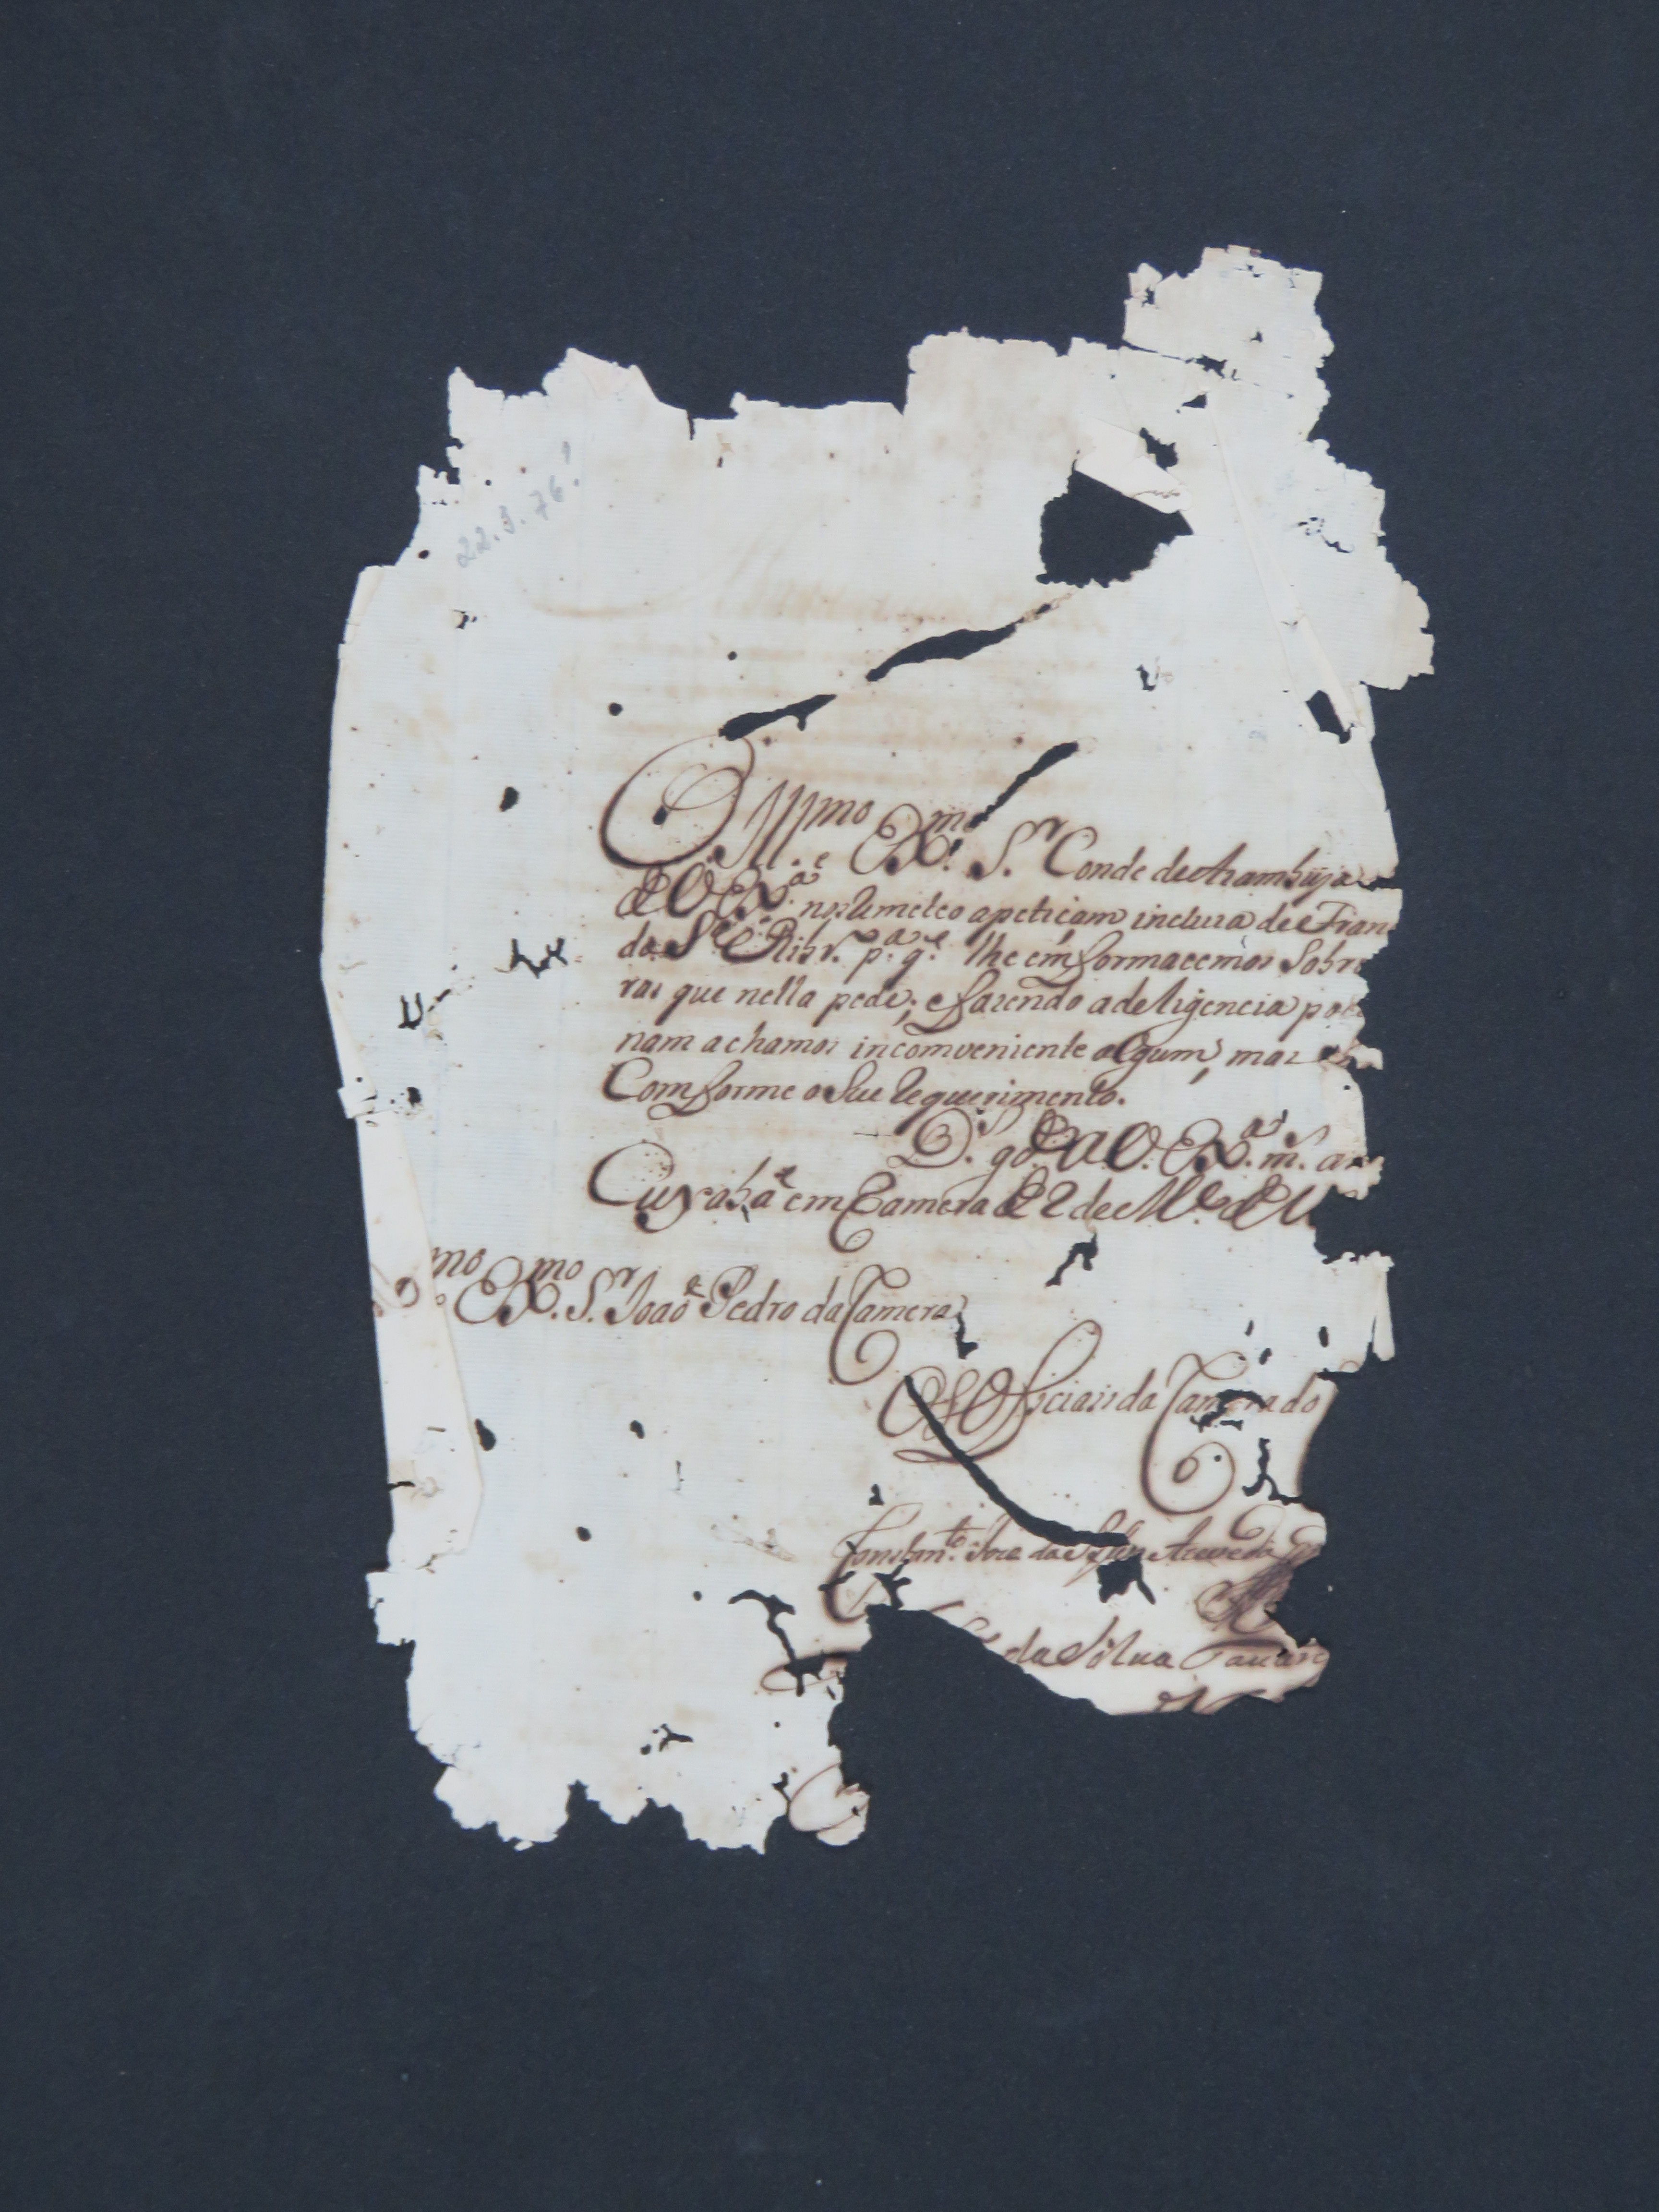 22.3.76!
O Illmo Exmo. S.r Conde de Azambuja
de V Ex.a nos remeteo a petiçam incluza de Fran
da S.a Ribr.o p.a q.e lhe emformacemos Sobre
ras que nella pede; e fazendo a deligencia pos
nam achamos incomveniente algum, mas
Comforme o Seu Requerimento.
D.s g.de a V. Ex.a m.s an
Cuyabá em Camera de 2 de M.o de
mo Exmo. S.r Joaõ Pedro da Camera
Os Officiais da Camera do
Constan.te Joze da Silva Azevedo
da Silva Tavare